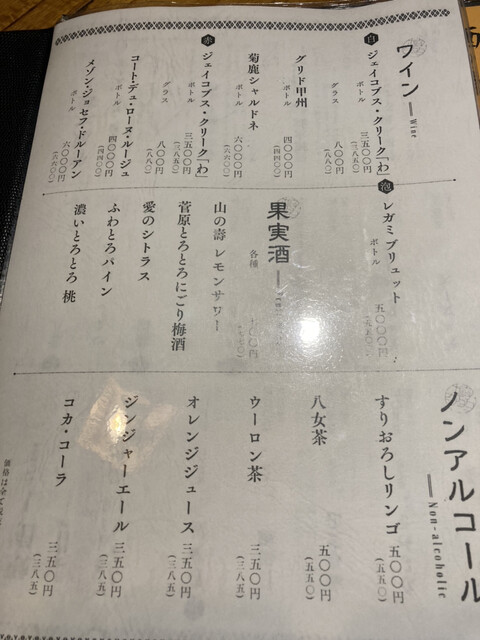 ワイン
Wine
白
ジェイコブス・クリーク「わ」
ボトル 三五〇〇円
(三八五〇)
グラス 八〇〇円
(八八〇)
グリド甲州
ボトル 四〇〇〇円
(四四〇〇)
菊鹿シャルドネ
ボトル 六〇〇〇円
(六六〇〇)
赤
ジェイコブス・クリーク「わ」
ボトル 三五〇〇円
(三八五〇)
グラス 八〇〇円
(八八〇)
コート・デュ・ローヌ・ルージュ
ボトル 四〇〇〇円
(四四〇〇)
メゾン・ジョセフ・ドルーアン
ボトル 六〇〇〇円
(六六〇〇)
泡
レガミブリュット
ボトル 五〇〇〇円
果実酒
各種
山の壽 レモンサワー
菅原とろとろにごり梅酒
愛のシトラス
ふわとろパイン
濃いとろとろ 桃
ノンアルコール
Non-alcoholic
すりおろしリンゴ 五〇〇円
(五五〇)
八女茶 五〇〇円
(五五〇)
ウーロン茶 三五〇円
(三八五)
オレンジジュース 三五〇円
(三八五)
ジンジャーエール 三五〇円
(三八五)
コカ・コーラ 三五〇円
(三八五)
価格は全て